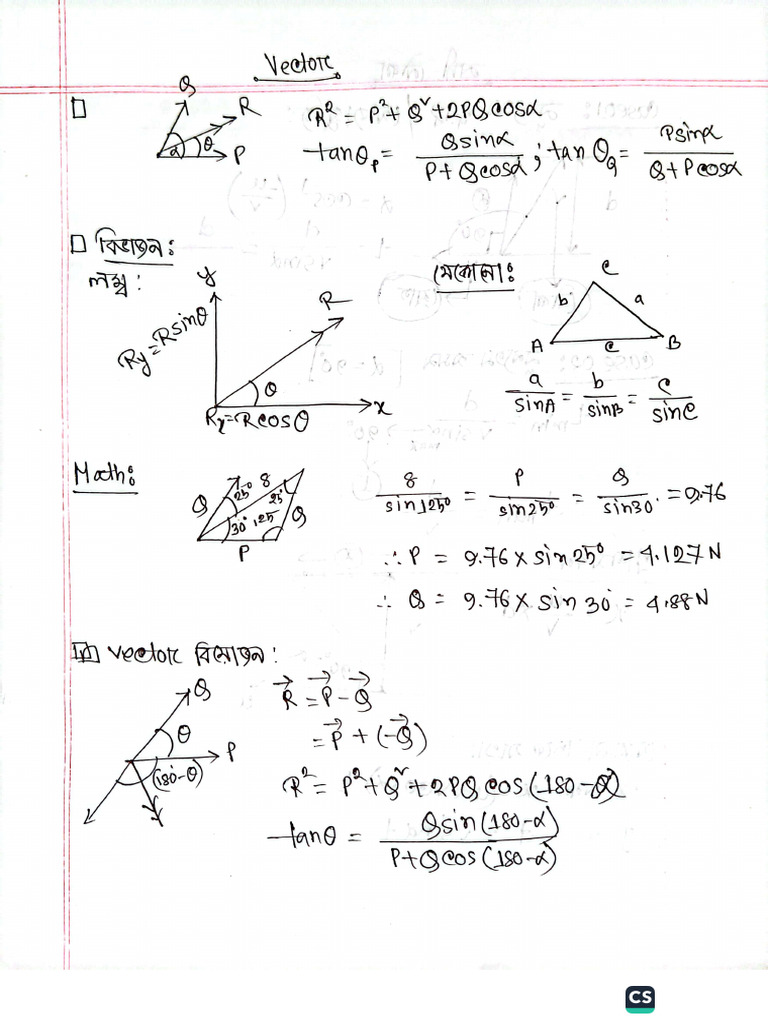 Vector
Q
R
P
α
θ
R² = P² + Q² + 2PQ cosα
tanθ_P = Q sinα / P + Q cosα ; tanθ_Q = P sinα / Q + P cosα
বিভাজন :
লম্ব :
y
R
θ
x
Ry = R sinθ
Rx = R cosθ
যেকোনো :
C
b
a
A
c
B
a / sinA = b / sinB = c / sinC
Math :
Q
25°
8
25°
30°
125°
Q
P
8 / sin125° = P / sin25° = Q / sin30° = 9.76
∴ P = 9.76 × sin 25° = 4.127 N
∴ Q = 9.76 × sin 30° = 4.88 N
vector বিয়োজন :
Q
θ
P
(180-θ)
R⃗ = P⃗ - Q⃗
= P⃗ + (-Q⃗)
R² = P² + Q² + 2PQ cos (180-α)
tanθ = Q sin (180-α) / P + Q cos (180-α)
CS